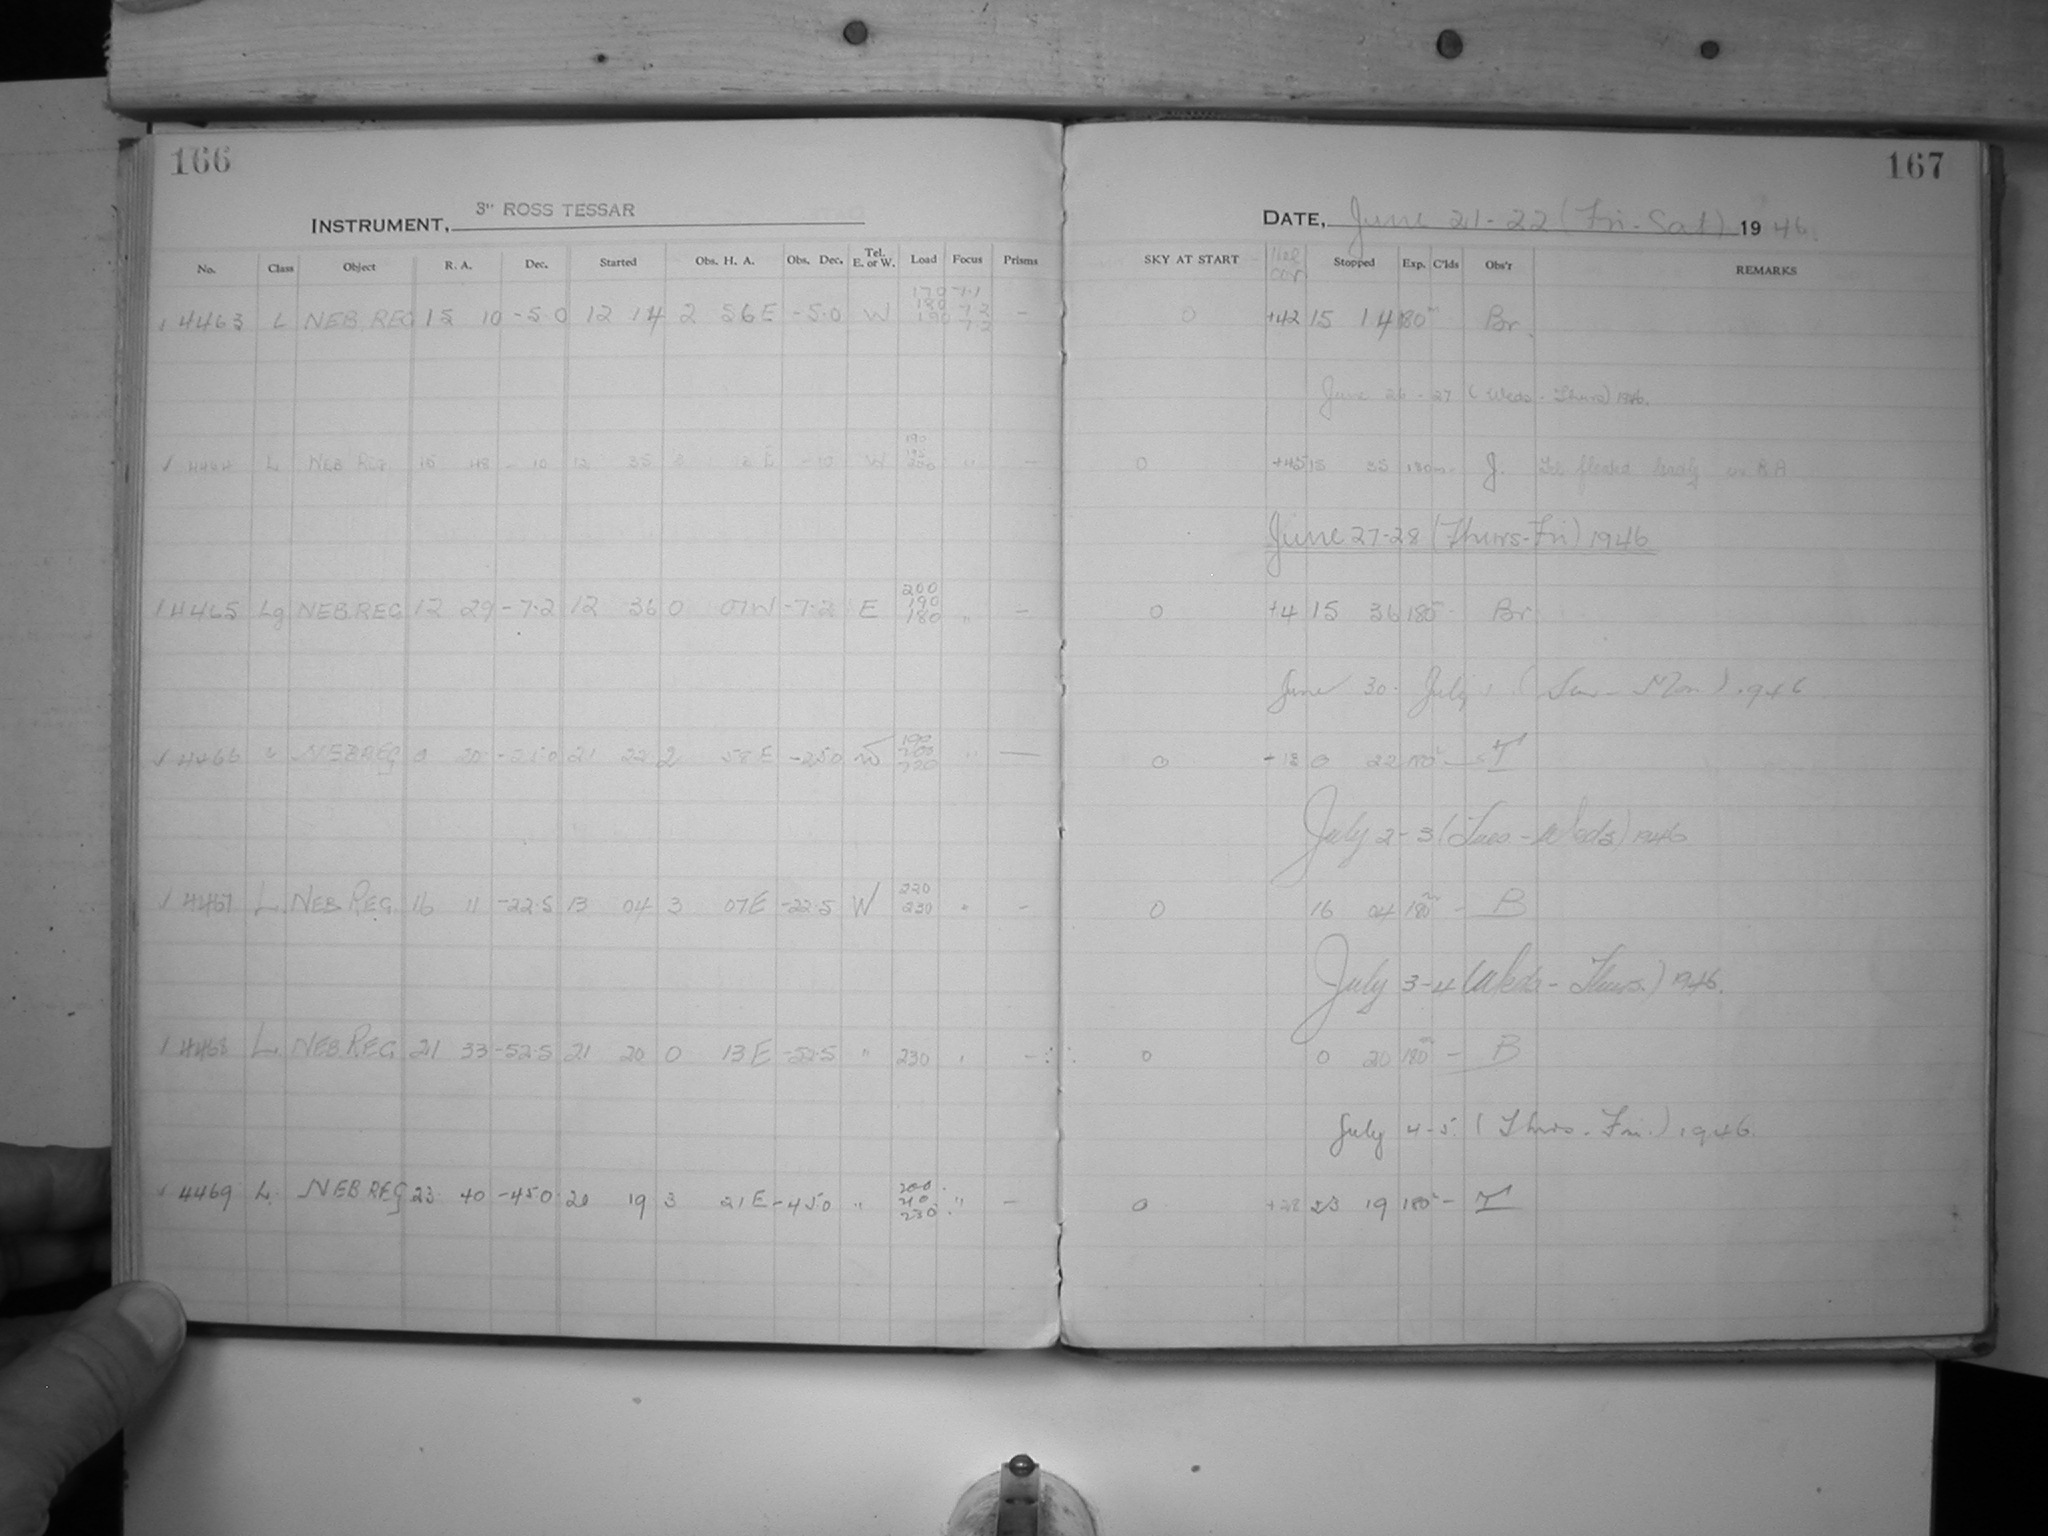 166
INSTRUMENT, 3" ROSS TESSAR
No. Class Object R. A. Dec. Started Obs. H. A. Obs. Dec. Tel. E. or W. Load Focus Prisms
4463 L NEB. REG 15 10 -5.0 12 14 2 56E -5.0 W 170 180 190 -7.1 -7.2 -7.2 -
L NEB REG 15 48 - 10 12 35 -10 W 190 195 200 " -
4465 Lg NEB.REG 12 29 -7.2 12 36 0 07W -7.2 E 200 190 180 " -
4466 NEBREG -25.0 21 22 2 58E -25.0 W 190 200 220 " -
4467 L NEB REG. 16 11 -22.5 13 04 3 07E -22.5 W 220 230 " -
4468 L NEB REG. 21 33 -52.5 21 20 0 13E -52.5 " 230 " -
4469 L. NEB REG 23 40 -45.0 20 19 3 21E -45.0 " 200 210 230 " -
167
DATE, June 21-22 (Fri-Sat) 1946.
SKY AT START Stopped Exp. C'lds Obs'r REMARKS
0 +42 15 14 180m Br.
June 26-27 (Weds-Thurs) 1946.
0 +45 15 35 180m J. Tel. floated badly in R A
June 27-28 (Thurs-Fri) 1946
0 +4 15 36 180m - Br
June 30. July 1 (Sun-Mon.) 1946
0 +18 0 22 180m - T
July 2-3 (Tues-Weds) 1946
0 16 04 180m - B
July 3-4 (Weds-Thurs.) 1946.
0 0 20 180m - B
July 4-5. (Thurs-Fri.) 1946.
0 +28 23 19 180m - T